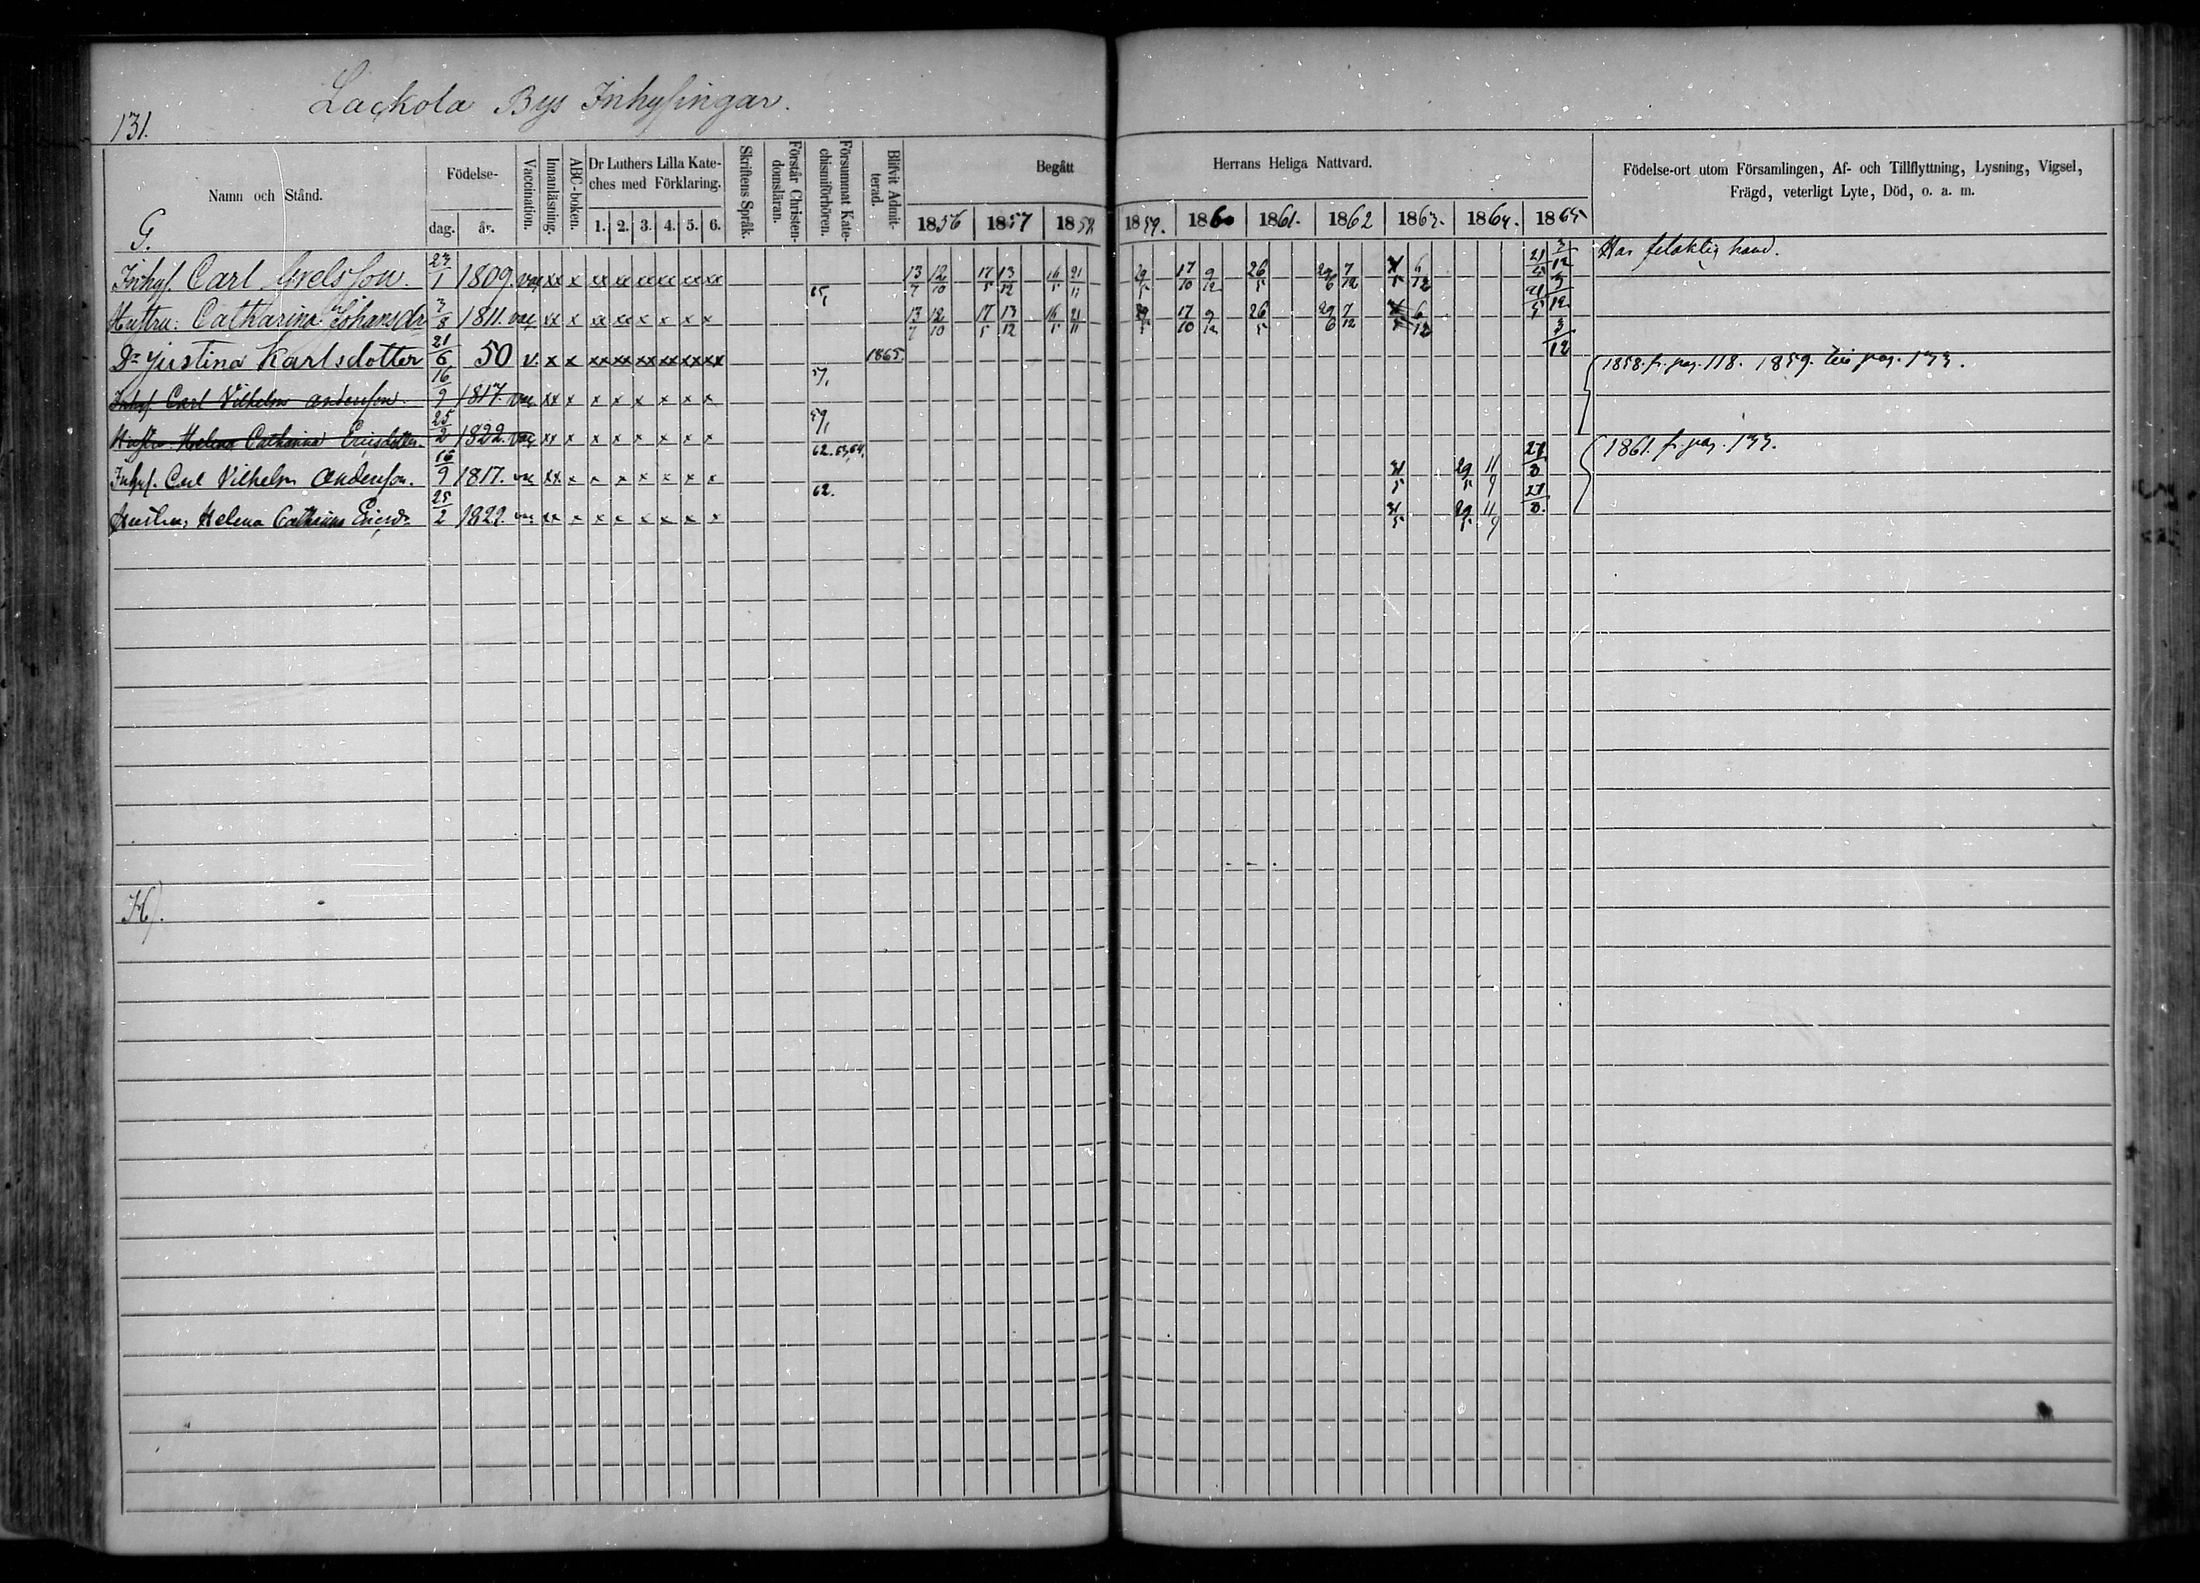 Lackola Bys Inhysingar.
131.
Namn och Stånd.
Födelse-
dag. år.
Vaccination.
Innanläsning.
ABC-boken.
Dr Luthers Lilla Kate-
ches med Förklaring.
1. 2. 3. 4. 5. 6.
Skriftens Språk.
Förstår Christen-
domsläran.
Försummat Kate-
chismiförhören.
Blifvit Admit-
terad.
Begått Herrans Heliga Nattvard.
1856 1857 1858 1859. 1860 1861. 1862 1863. 1864. 1865
Födelse-ort utom Församlingen, Af- och Tillflyttning, Lysning, Vigsel,
Frägd, veterligt Lyte, Död, o. a. m.
G.
Inhys. Carl 23/1 1809. vac xx x xx xx xx xx xx xx 13/7 12/10 17/5 13/12 16/5 21/11 29/5 17/10 9/12 26/5 29/6 7/12 6/12 21/5 3/12 Har hand.
Hustru: Catharina Johansdr 3/8 1811. vac xx x xx xx x x x x 65, 13/7 12/10 17/5 13/12 16/5 21/11 29/5 17/10 9/12 26/5 29/6 7/12 6/12 21/5 3/12
Dr Justina Karlsdotter 21/6 50 v. x x xx xx xx xx xx xx 1865 3/12
Inhys. Carl Vilhelm Andersson. 16/9 1817. vac xx x x x x x x x 57, 1858. fr. pag. 118. 1859. till pag. 133.
Hustru Helena Catharina Ericsdotter 25/2 1822. vac xx x x x x x x x 59,
Inhys. Carl Vilhelm Andersson. 16/9 1817. vac xx. x x x x x x x 62. 63, 64, 31/5 29/5 11/9 27/8 1861. fr. pag. 133.
Hustru, Helena Catharina Ericsdr 25/2 1822. vac xx x x x x x x x 62. 31/5 29/5 11/9 27/8.
H).